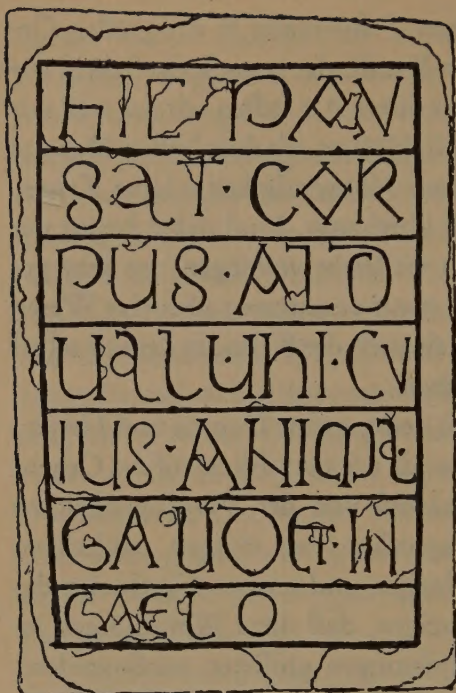 HIC PAV
SAT · COR
PUS · ALD
UALUHI · CV
IUS · ANIMA ·
GAUDET · IN
CAELO